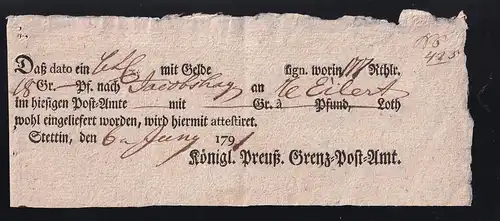 No
425
Daß dato ein mit Gelde sign. worin 177 Rthlr.
18 Gr. — Pf. nach Jacobshag an C Eilert
im hiesigen Post-Amte — mit — Gr. à — Pfund, Loth
wohl eingeliefert worden, wird hiermit attestiret.
Stettin, den 6 Juny 1791
Königl. Preuß. Grenz-Post-Amt.